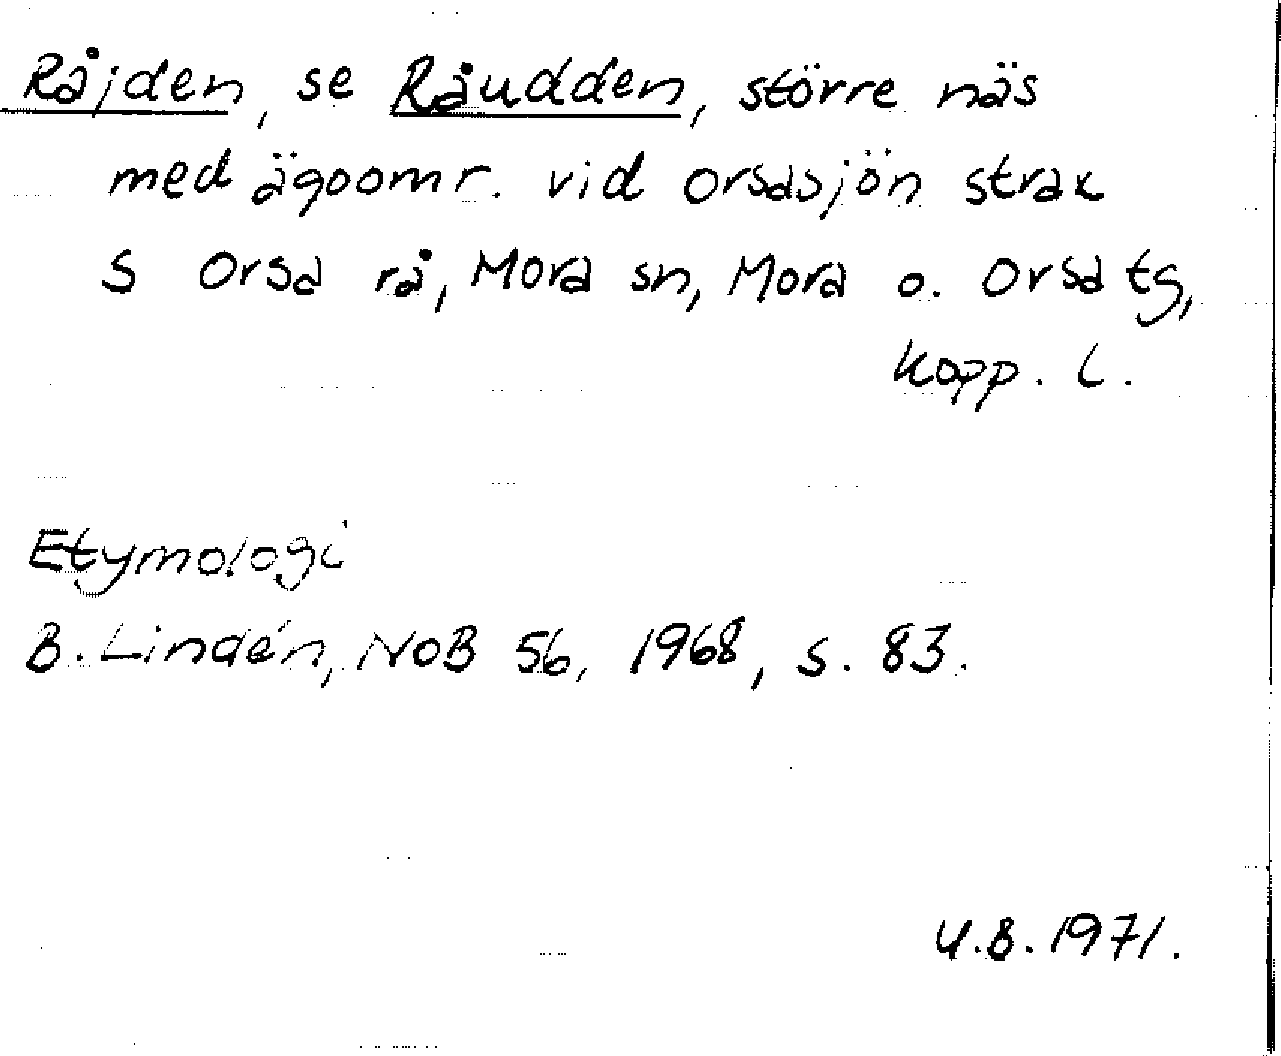 Råjden, se Råudden, större näs
med ägoomr. vid Orsasjön strax
S Orsa rå, Mora sn, Mora o. Orsa tg,
Kopp. L.
Etymologi
B. Lindén, NoB 56, 1968, s. 83.
U.B. 1971.